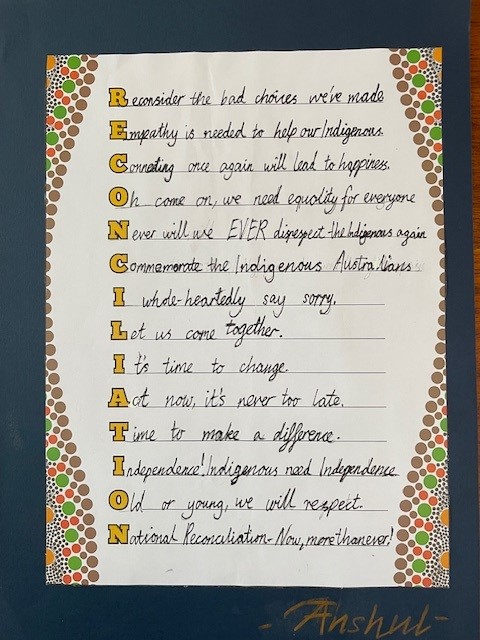 Reconsider the bad choices we've made
Empathy is needed to help our Indigenous.
Connecting once again will lead to happines.
Oh come on, we need equality for everyone
Never will we EVER disrespect the Indigenous again
Commemorate the Indigenous Australians
I whole-heartedly say sorry.
Let us come together.
It's time to change.
Act now, it's never too late.
Time to make a difference.
Independence! Indigenous need Independence
Old or young, we will respect.
National Reconciliation- Now, more than ever!
-Anshul-